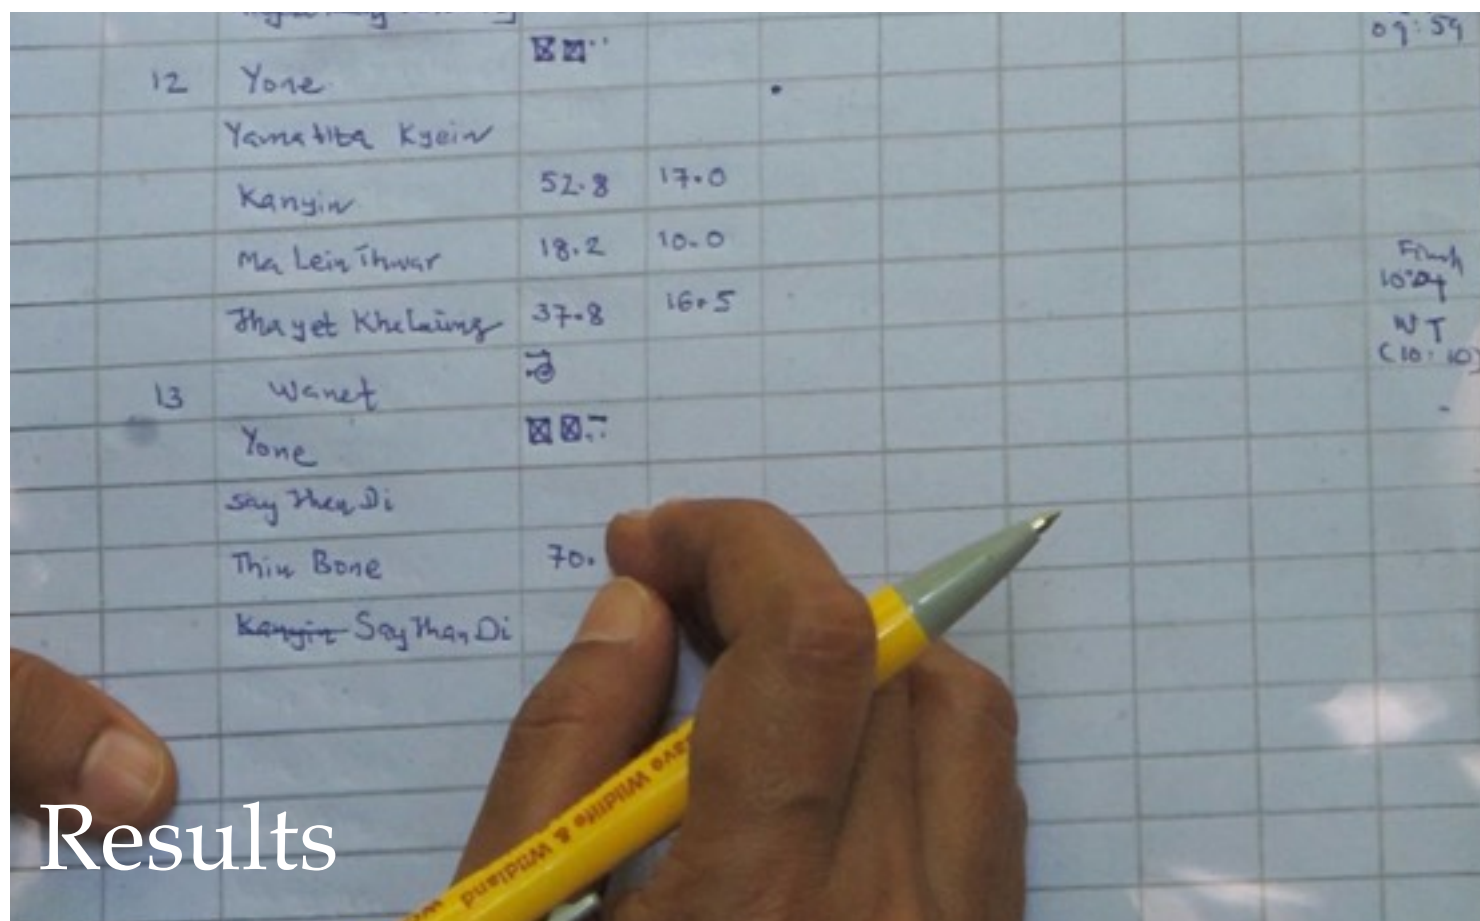 09:59
12 Yone
Yamatita Kyein
Kanyin 52.8 17.0
Ma Lein Thwar 18.2 10.0
Thayet 37.8 16.5
13 Wanet NT (10:10)
Yone
Say Than Di
Thin Bone 70.
Kanyin Say Than Di
Save Wildlife & Wildland
Results